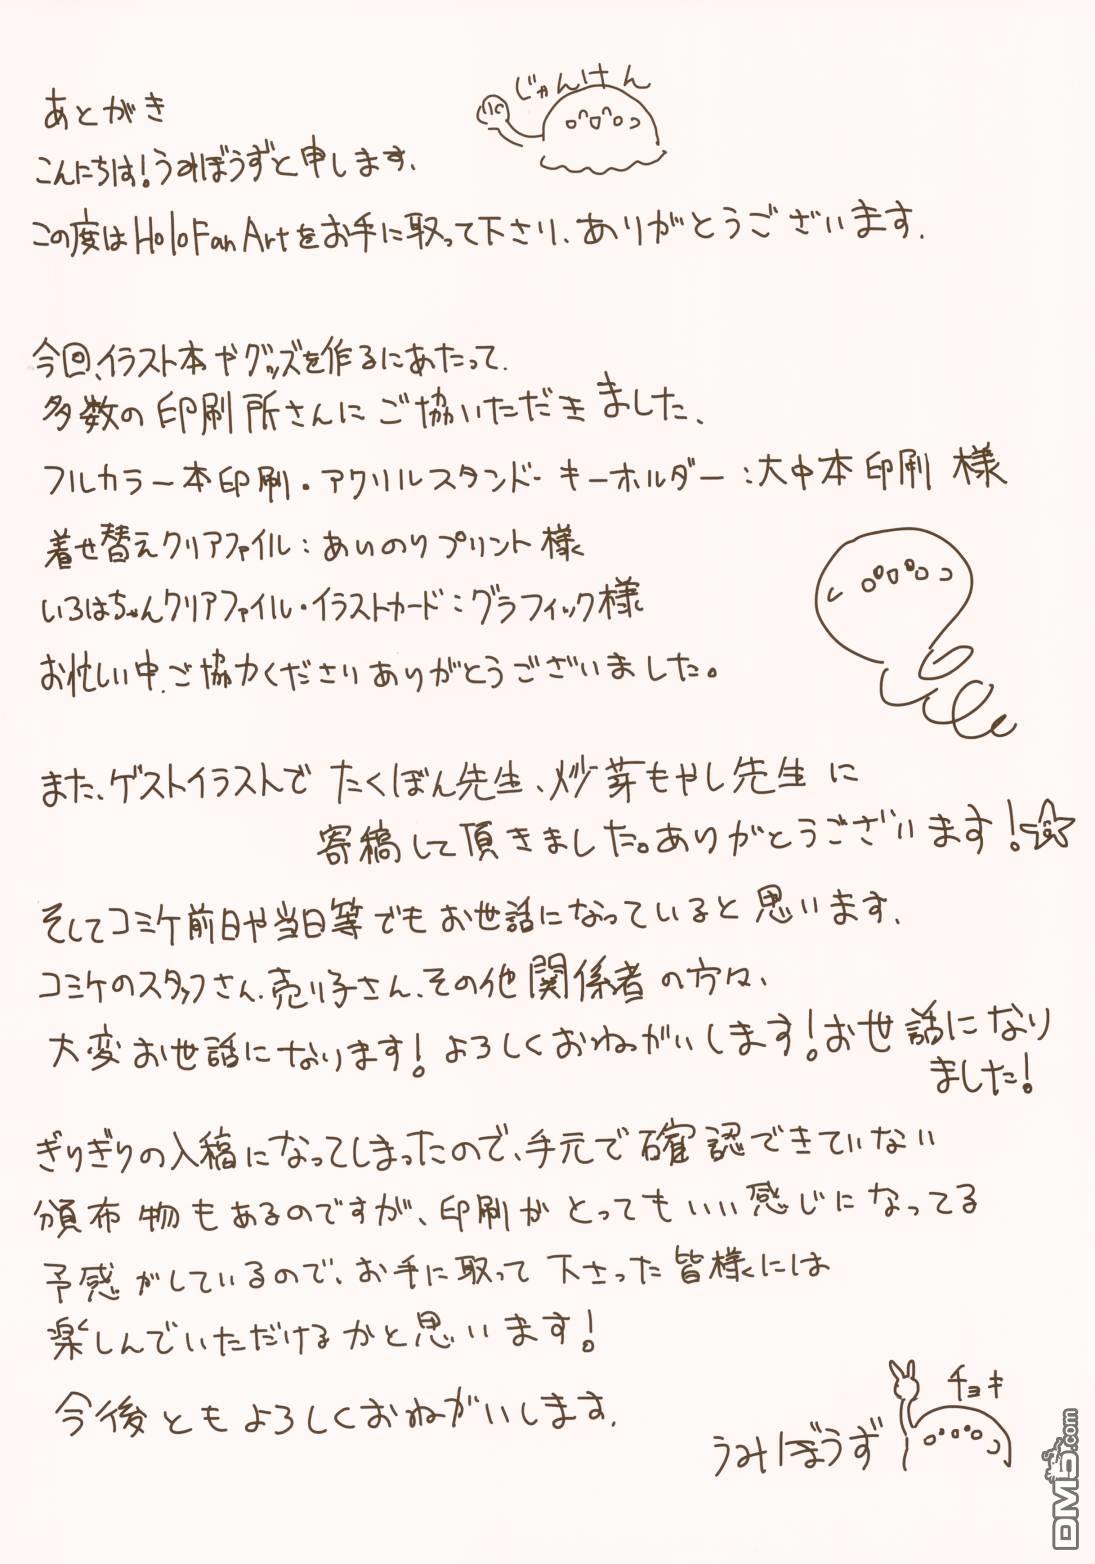 じゃんけん
あとがき
こんにちは!うみぼうずと申します、
この度はHoloFanArtをお手に取って下さり、ありがとうございます、
今回、イラスト本やグッズを作るにあたって、
多数の印刷所さんにご協いただきました、
フルカラー本印刷・アクリルスタンド・キーホルダー:大中本印刷 様
着せ替えクリアファイル:あいのりプリント様
いろはちゃんクリアファイル・イラストカード:グラフィック様
お忙しい中、ご協力くださりありがとうございました。
また、ゲストイラストで たくぼん先生、炒芽もやし先生 に
寄稿して頂きました。ありがとうございます!
そしてコミケ前日や当日等でもお世話になっていると思います、
コミケのスタッフさん、売り子さん、その他関係者の方々、
大変お世話になります!よろしくおねがいします!お世話になり
ました!
ぎりぎりの入稿になってしまったので、手元で確認できていない
頒布物もあるのですが、印刷がとってもいい感じになってる
予感がしているので、お手に取って下さった皆様には
楽しんでいただけるかと思います!
今後ともよろしくおねがいします、
チョキ
うみぼうず
DM5.com